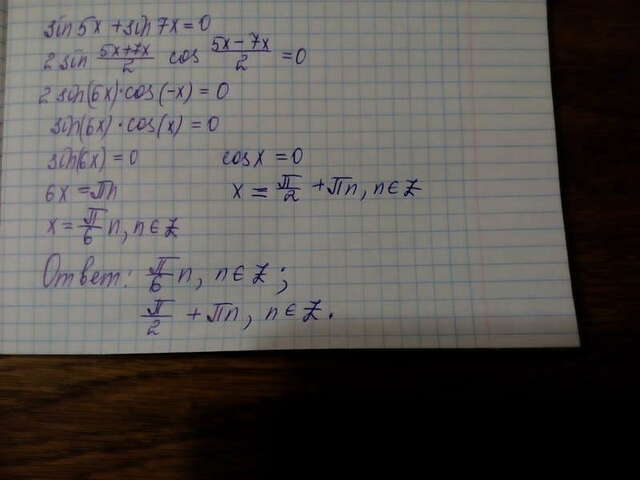 sin 5x + sin 7x = 0
2 sin (5x+7x)/2 cos (5x-7x)/2 = 0
2 sin(6x)·cos(-x) = 0
sin(6x)·cos(x) = 0
sin(6x) = 0 cos x = 0
6x = πn x = π/2 + πn, n ∈ Z
x = π/6 n, n ∈ Z
Ответ: π/6 n, n ∈ Z;
π/2 + πn, n ∈ Z.